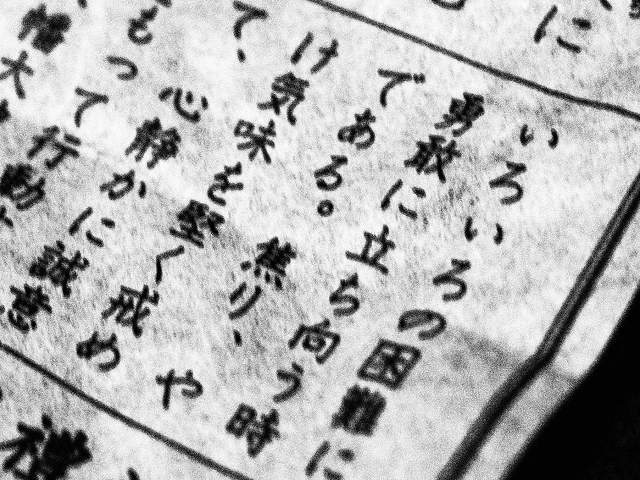 いろいろの困難に
勇敢に立ち向う時
である。焦り、や
け気味を堅く戒め
て、心静かに誠意
もって行動
大
に